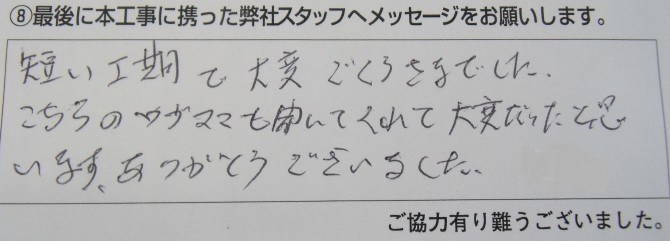 ⑧最後に本工事に携った弊社スタッフへメッセージをお願いします。
短い工期で大変ごくろうさまでした。
こちらのワガママも聞いてくれて大変だったと思
います、ありがとうございました。
ご協力有り難うございました。